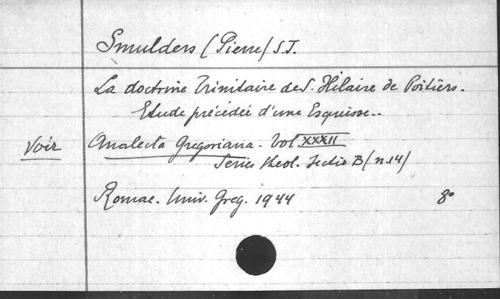 Smulders (Pierre) S.J.
La doctrine Trinitaire de S. Hilaire de Poitiers.
Etude précédée d'une Esquisse..
Voir Analecta Gregoriana. Vol XXXII
Series theol. Sectio B (n.14)
Romae. Univ. Greg. 1944 8°